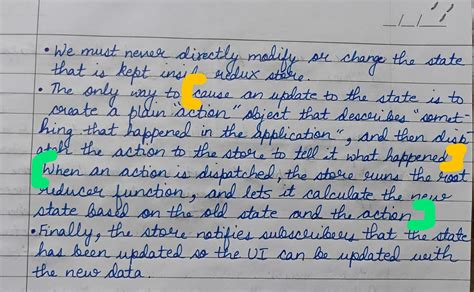 • We must never directly modify or change the state
that is kept inside redux store.
• The only way to cause an update to the state is to
create a plain "action" object that describes "somet-
hing that happened in the application", and then disp
atch the action to the store to tell it what happened
When an action is dispatched, the store runs the root
reducer function, and lets it calculate the new
state based on the old state and the action
• Finally, the store notifies subscribers that the state
has been updated so the UI can be updated with
the new data.